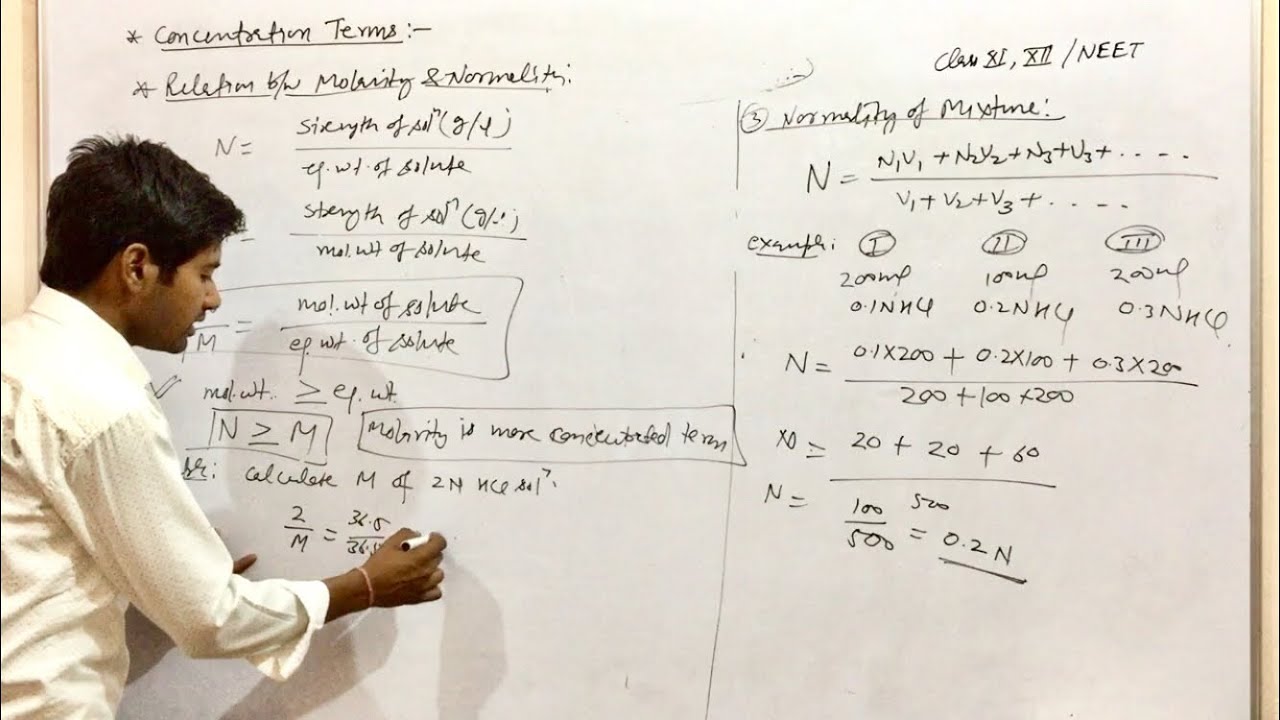 * Concentration Terms:-
* Relation b/w Molarity & Normality:
N = strength of solⁿ (g/l)
eq. wt. of solute
strength of solⁿ (g/l)
mol. wt of solute
M = mol. wt of solute
eq. wt. of solute
✓ mol. wt. ≥ eq. wt.
N ≥ M
Molarity is more concentrated term
calculate M of 2N HCl solⁿ.
2
M
= 36.5
36.5
Class XI, XII / NEET
③ Normality of Mixture:
N = N₁V₁ + N₂V₂ + N₃+V₃ + . . . .
V₁ + V₂ + V₃ + . . . .
example: I II III
200ml 100ml 200ml
0.1N HCl 0.2N HCl 0.3N HCl
N = 0.1×200 + 0.2×100 + 0.3×200
200 + 100 +200
= 20 + 20 + 60
500
N = 100
500
= 0.2 N